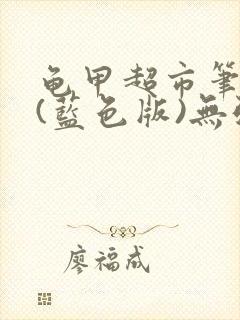 龟甲超市筆
(藍色版)無
廖福成